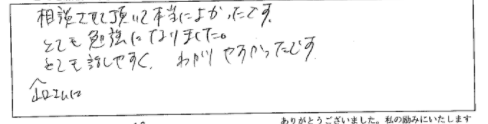 相談させて頂いて本当によかったです。
とても勉強になりました。
とても話しやすく、わかりやすかったです
ありがとうございました。私の励みにいたします